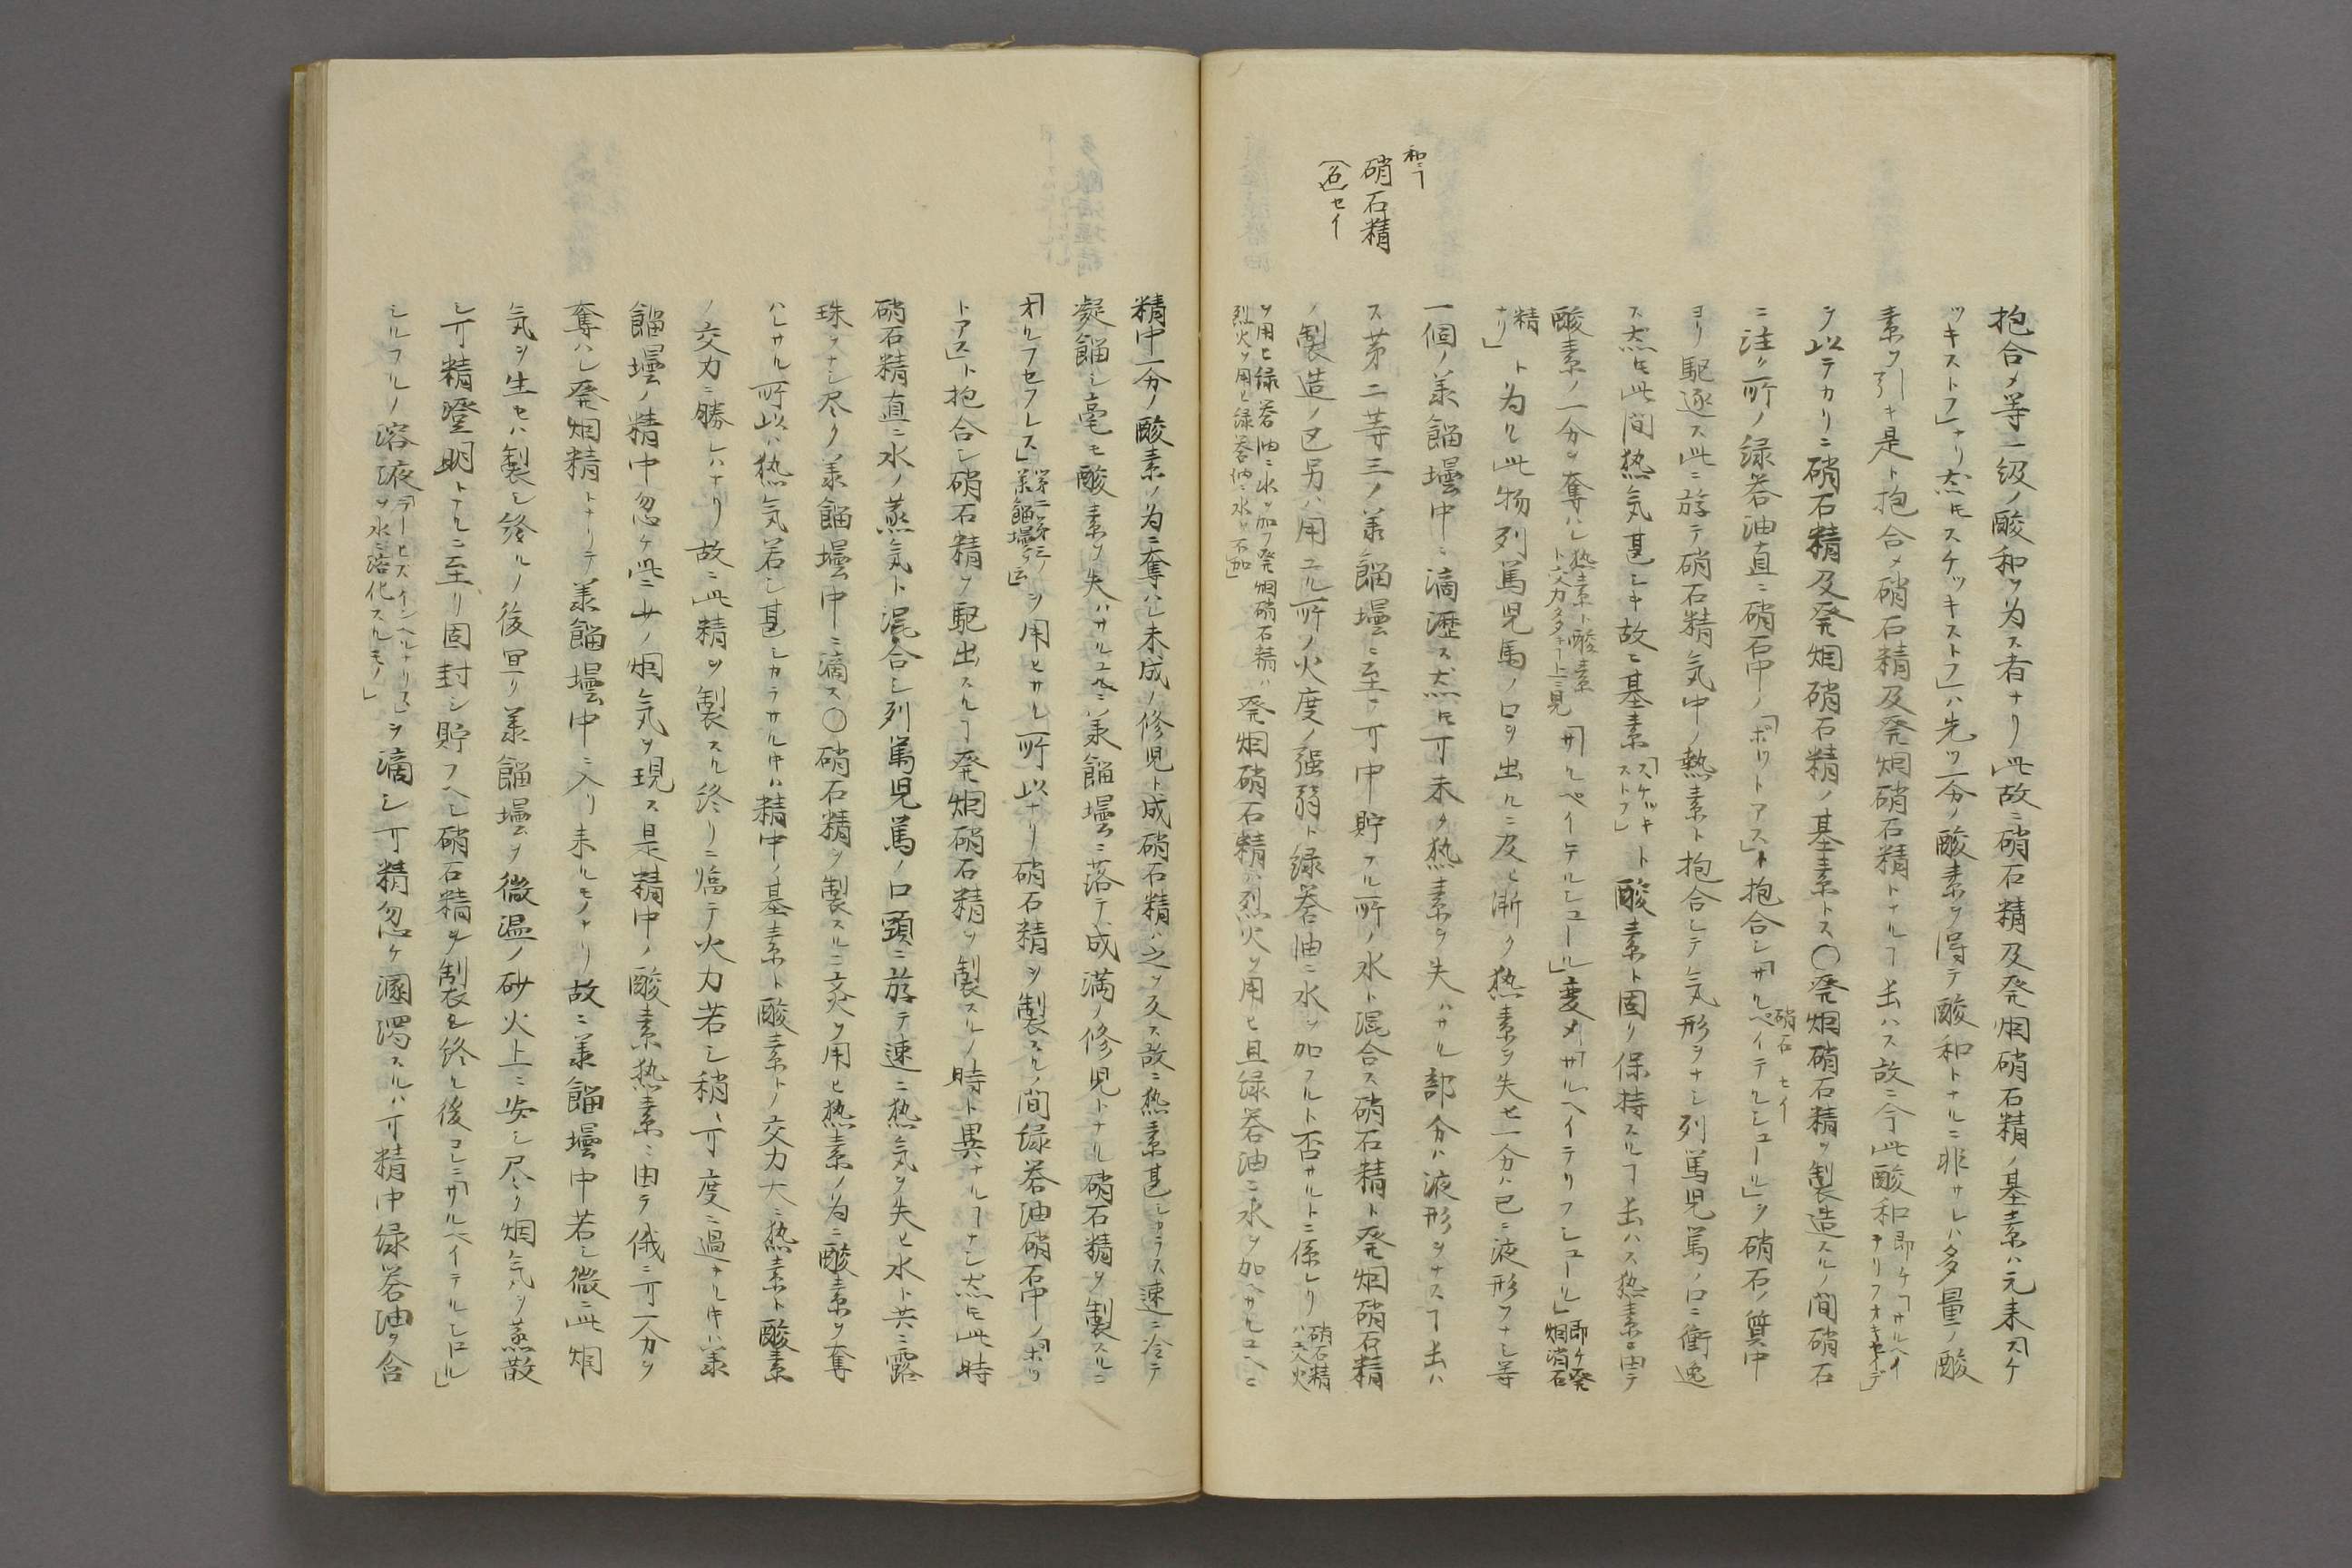 抱合メ等二級ノ酸和ヲ為ス者ナリ此故ニ硝石精及発烟硝石精ノ基素ハ元来「スケ
ツキストフ」ナリ然𪜈「スケツキストフ」ハ先ツ一分ノ酸素ヲ得テ酸和トナルニ非サレハ多量ノ酸
素ヲ引キ是ト抱合メ硝石精及発烟硝石精トナルヿ能ハス故ニ今此酸和即チ「サルペイ
テリフオキセイデ」
ヲ以テカリニ硝石精及発烟硝石精ノ基素トス○発烟硝石精ヲ製造スルノ間硝石
ニ注ク所ノ緑礬油直ニ硝石中ノ「ポツトアス」ト抱合シ「サルペイテルシュール」ヲ硝石ノ質中
硝石 セイ
ヨリ駆逐ス此ニ於テ硝石精気中ノ熱素ト抱合シテ気形ヲナシ列篤児篤ノ口ニ衝逸
ス然𪜈此間熱気甚シキ故ニ基素「スケツキ
ストフ」ト酸素ト固ク保持スルヿ能ハス熱素ニ由テ
酸素ノ一分ヲ奪ハレ熱素ト酸素
ト交力多キヿ上ニ見「サルペイテルシュール」変メ「サルペイテリフシュール」即チ発
烟消石
精
ナリ」ト為ル此物列篤児篤ノ口ヲ出ルニ及ヒ漸ク熱素ヲ失ヒ一分ハ已ニ液形ヲナシ等
一個ノ羕餾壜中ニ滴瀝ス然𪜈可未タ熱素ヲ失ハサル部分ハ液形ヲナスヿ能ハ
ス第二等三ノ羕餾壜ニ至テ可中貯フル所ノ水ト混合ス硝石精ト発烟硝石精
和ニヿ
硝石精
(名)セイ
ノ製造ノ区別ハ用ユル所ノ火度ノ强弱ト緑礬油ニ水ヲ加フルト否サルトニ係レリ硝石精
ハ文火
ヲ用ヒ緑礬油ニ水ヲ加フ発烟硝石精ハ
烈火ヲ用ヒ緑礬油ニ水ヲ不加」発烟硝石精ハ烈火ヲ用ヒ且緑礬油ニ水ヲ加ヘサルユヘニ
精中一分ノ酸素ノ為ニ奪ハレ未成ノ修児ト成硝石精ハ之ヲ久ス故ニ熱素甚シカラス速ニ冷テ
凝餾シ毫モ酸素ヲ失ハサルユヘニ羕餾壜ニ落テ成満ノ修児トナル硝石精ヲ製スルニ
「オルフセフレス」第二第三ノ
羕餾壜ヲ云ヲ用ヒサル所以ナリ硝石精ヲ製スルノ間緑礬油硝石中ノ「ポツ
トアス」ト抱合シ硝石精ヲ駆出スルヿ発烟硝石精ヲ製スルノ時ト異ナルヿナシ然𪜈此時
硝石精直ニ水ノ蒸気ト混合シ列篤児篤ノ口頭ニ於テ速ニ熱気ヲ失ヒ水ト共ニ露
珠ヲナシ尽ク羕餾壜中ニ滴ス○硝石精ヲ製スルニ文火ヲ用ヒ熱素ノ為ニ酸素ヲ奪
ハレサル所以ハ熱気若シ甚シカラサル𪜈ハ精中ノ基素ト酸素トノ交力大ニ熱素ト酸素
ノ交力ニ勝レハナリ故ニ此精ヲ製スル終リニ臨テ火力若シ稍々可度ニ過キル𪜈ハ羕
餾壜ノ精中忽チ些少ノ烟気ヲ現ス是精中ノ酸素熱素ニ由テ俄ニ可一分ヲ
奪ハレ発烟精トナリテ羕餾壜中ニ入リ来ルモノナリ故ニ羕餾壜中若シ微ニ此烟
気ヲ生セハ製シ終ルノ後冝リ羕餾壜ヲ微温ノ砂火上ニ安シ尽ク烟気ヲ蒸散
シ可精澄明トナルニ至リ固封シ貯フヘシ硝石精ヲ製シ終ル後コレニ「サルペイテルシロル」
シルフルノ溶液「ラーヒスインヘルナリス」
ヲ水ニ溶化スルモノ」ヲ滴シ可精忽チ溷濁スルハ可精中緑礬油ヲ含